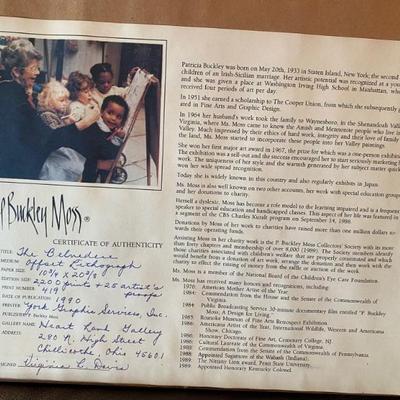 P Buckley Moss®
CERTIFICATE OF AUTHENTICITY
TITLE: The Belvedere
MEDIUM: Offset Lithograph
PAPER SIZE: 10 1/4 x 20 7/8
EDITION SIZE: 2200 prints + 25 artist's proofs
PRINT NUMBER: 419
DATE OF PUBLICATION: 1990
York Graphic Services, Inc.
PUBLISHER: P. Buckley Moss
GALLERY NAME: Heart Land Gallery
ADDRESS: 280 N. High Street
Chillicothe, Ohio 45601
SIGNED Virginia C. Davis
Patricia Buckley was born on May 20th, 1933 in Staten Island, New York, the second
children of an Irish-Sicilian marriage. Her artistic potential was recognized at a young
and she was given a place at Washington Irving High School in Manhattan, where
received four periods of art per day.
In 1951 she earned a scholarship to The Cooper Union, from which she subsequently
ated in Fine Arts and Graphic Design.
In 1964 her husband's work took the family to Waynesboro, in the Shenandoah Valley
Virginia, where Ms. Moss came to know the Amish and Mennonite people who live in
Valley. Much impressed by their ethics of hard work, integrity and their love of family
the land, Ms. Moss started to incorporate these people into her Valley paintings.
She won her first major art award in 1967, the prize for which was a one-person exhibition
The exhibition was a sell-out and the success encouraged her to start seriously marketing
work. The uniqueness of her style and the warmth generated by her subject matter quickly
won her wide spread recognition.
Today she is widely known in this country and also regularly exhibits in Japan.
Ms. Moss is also well known on two other accounts, her work with special education groups
and her donations to charity.
Herself a dyslexic, Ms. Moss has become a role model to the learning impaired and is a frequent
speaker to special education and handicapped classes. This aspect of her life was featured in
a segment of the CBS Charles Kuralt program on September 14, 1986.
Donations by Moss of her work to charities have raised more than one million dollars to-
wards their operating funds.
Assisting Moss in her charity work is the P. Buckley Moss Collectors' Society with its more
than forty chapters and membership of over 8,000 (1989). The Society members identify
those charities associated with children's welfare that are properly constituted and which
would benefit from a donation of art work, arrange the donation and then work with the
charity to effect the raising of money from the raffle or auction of the work.
Ms. Moss is a member of the National Board of the Children's Eye Care Foundation.
Ms. Moss has received many honors and recognitions, including:
1976: American Artist of the Year
1984: Commendation from the House and the Senate of the Commonwealth of
Virginia.
1984 Public Broadcasting Service 30-minute documentary film entitled "P. Buckley
Moss, A Design for Living."
1985: Roanoke Museum of Fine Arts Retrospect Exhibition.
1986: Americana Artist of the Year, International Wildlife, Western and Americana
Show, Chicago.
1986: Honorary Doctorate of Fine Art, Centenary College, NJ.
1986: Cultural Laureate of the Commonwealth of Virginia.
1988: Commendation from the Senate of the Commonwealth of Pennsylvania.
1988: Appointed Sagamore of the Wabash (Indiana).
1989 The Nittany Lion award, Penn State University.
1989: Appointed Honorary Kentucky Colonel.